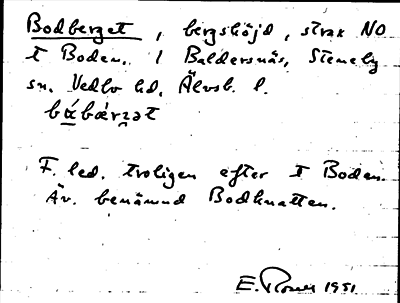 Bodberget, bergshöjd, strax NO
t Boden. / Baldersnäs, Steneby
sn. Vedbo hd. Älvsb. l.
F. led. troligen efter t Boden.
Äv. benämnd Bodknatten.
1951